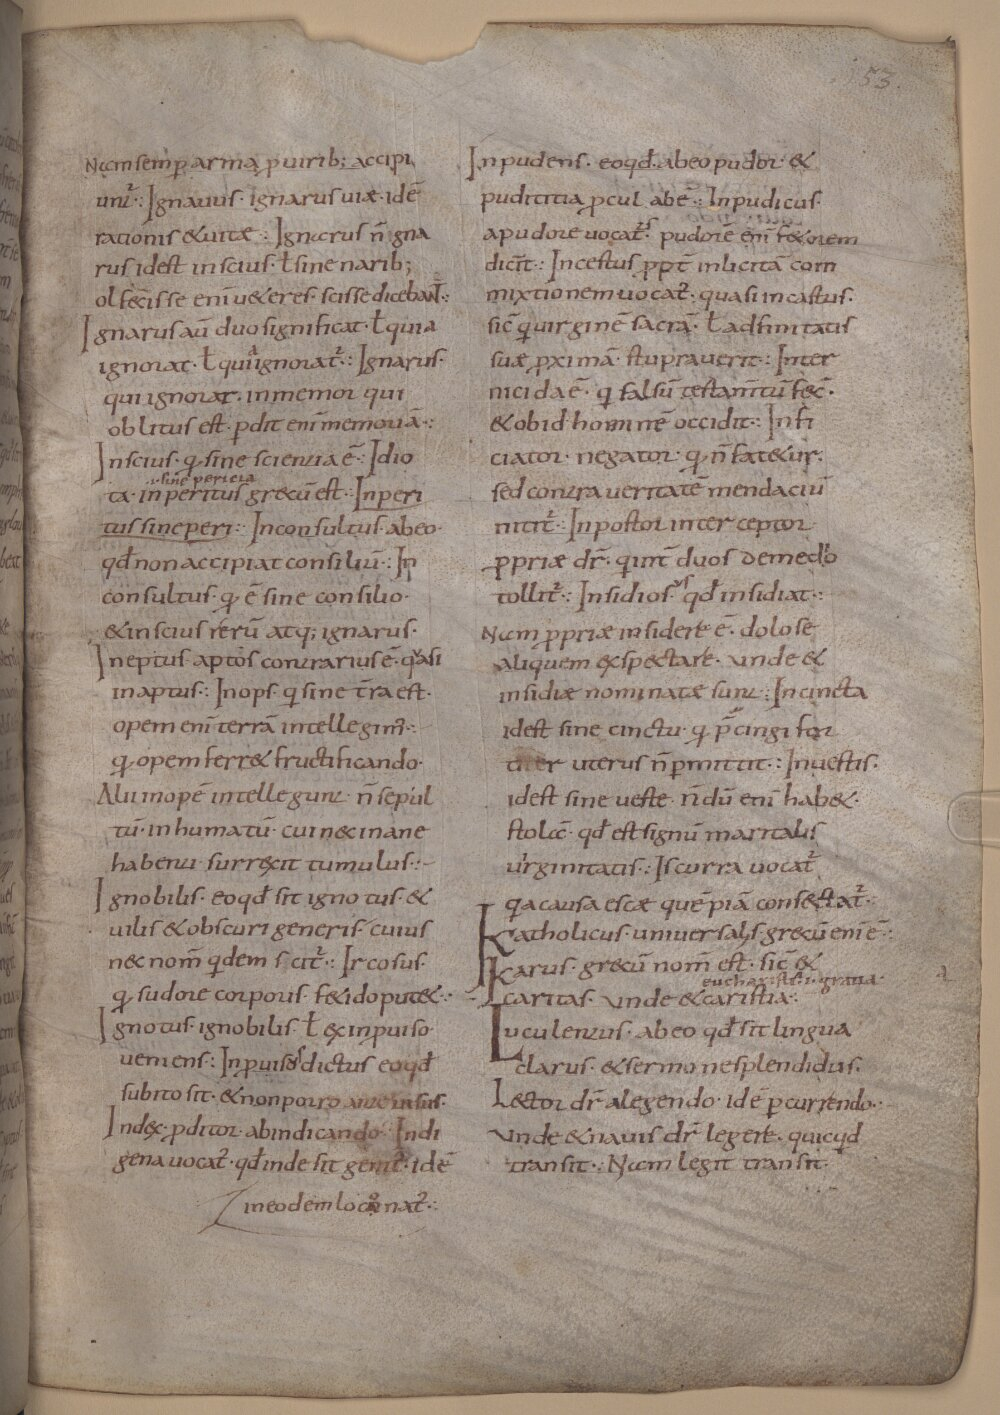 153.
Nam semp̄ arma ꝓ uirib; accipi
unt̄ :· Ignauus· ignarus uiæ· idē
rationis & uitæ :· Ignarus n̄ gna
rus id est inscius· ł sine narib;
olfecisse eni ueteres· scisse dicebant̄ :·
Ignarus aū duo significat· ł quia
ignorat· ł qui ignorat̄ :· Ignarus·
qui ignorat· inmemor qui
oblitus est· ꝑdit enī memoriā :·
Inscius· q̄ sine scientia ē· Idio
·i· sine pericia
ta· inperitus grecū est :· Inperi
tus sine peri :· Inconsultus· ab eo·
qd̄ non accipiat consiliū :· In
consultus· q̄ ē sine consilio·
& inscius rerū atq; ignarus·
Ineptus· aptos contrarius ē· quasi
inaptus :· Inops· q̄ sine t̄ra est·
opem enī terrā intellegim̄ :·
q̄ opem ferre & fructificando·
Alii inopē intellegunt· n̄ sepul
tū· inhumatū· cui nec inane
habenti surrexit tumulus :·
Ignobilis· eo qd̄ sit ignotus· &
uilis & obscuri generis· cuius
nec nom̄ qdem scit̄ :· Ircosus·
q̄ sudore corporis· f&ido put&·:
Ignotus· ignobilis· ł ex inprouiso·
ueniens :· Inprouisus dictus eo qd̄
subito sit· & non porro ante uisus·
Index· ꝓditor· ab indicando· Indi
gena uocat̄· qd̄ inde sit genit̄· idē
in eodem loco nat̄ :·
Inpudens· eo qd̄ ab eo pudor· &
pudititia ꝓcul abē :· Inpudicus·
a pudore uocat̄s· pudorē enī f&orem
dicit̄ :· Incestus ꝓpt̄ inlicitā com
mixtionem uocat̄· quasi incastus·
sic̄ q̄ uirginē sacrā· ł adfinitatis
suæ ꝓximā· stuprauerit :· Inter
nicida ē· q̄ falsū testam̄tū fec̄·
& ob id hominē occidit :· Infi
ciator· negator· q̄ n̄ fat&ur·
sed contra ueritatē mendaciū
nitit̄ :· Inpostor interceptor
ꝓpriæ dr̄· q̄ int̄ duos de medio
tollit̄ :· Insidiosus qd̄ insidiat :·
Nam ꝓpriæ insidere ē· dolose
aliquem exspectare· unde &
insidiæ nominatæ sunt :· Incincta
id est sine cinctu· q̄ p̄cingi for
titer uterus n̄ ꝑmittit :· Inuestis·
id est sine ueste· n̄ dū enī hab&·
stolā· qd̄ est signū maritalis
uirginitatis :· Iscurra uocat̄
qa causa escæ quēpiā consectat̄ :·
Katholicus· uniuersalis· grecū enī ē :·
Karus· grecū nom̄ est· sic̄ &
eucharistia· i· gratia·
caritas· unde & caristia :·
Luculentus· ab eo qd̄ sit lingua
clarus· & sermone splendidus·
Lector dr̄ a legendo· idē ꝑcurrendo·:
unde & nauis dr̄ legere· quicqd̄
transit :· Nam legit transit·